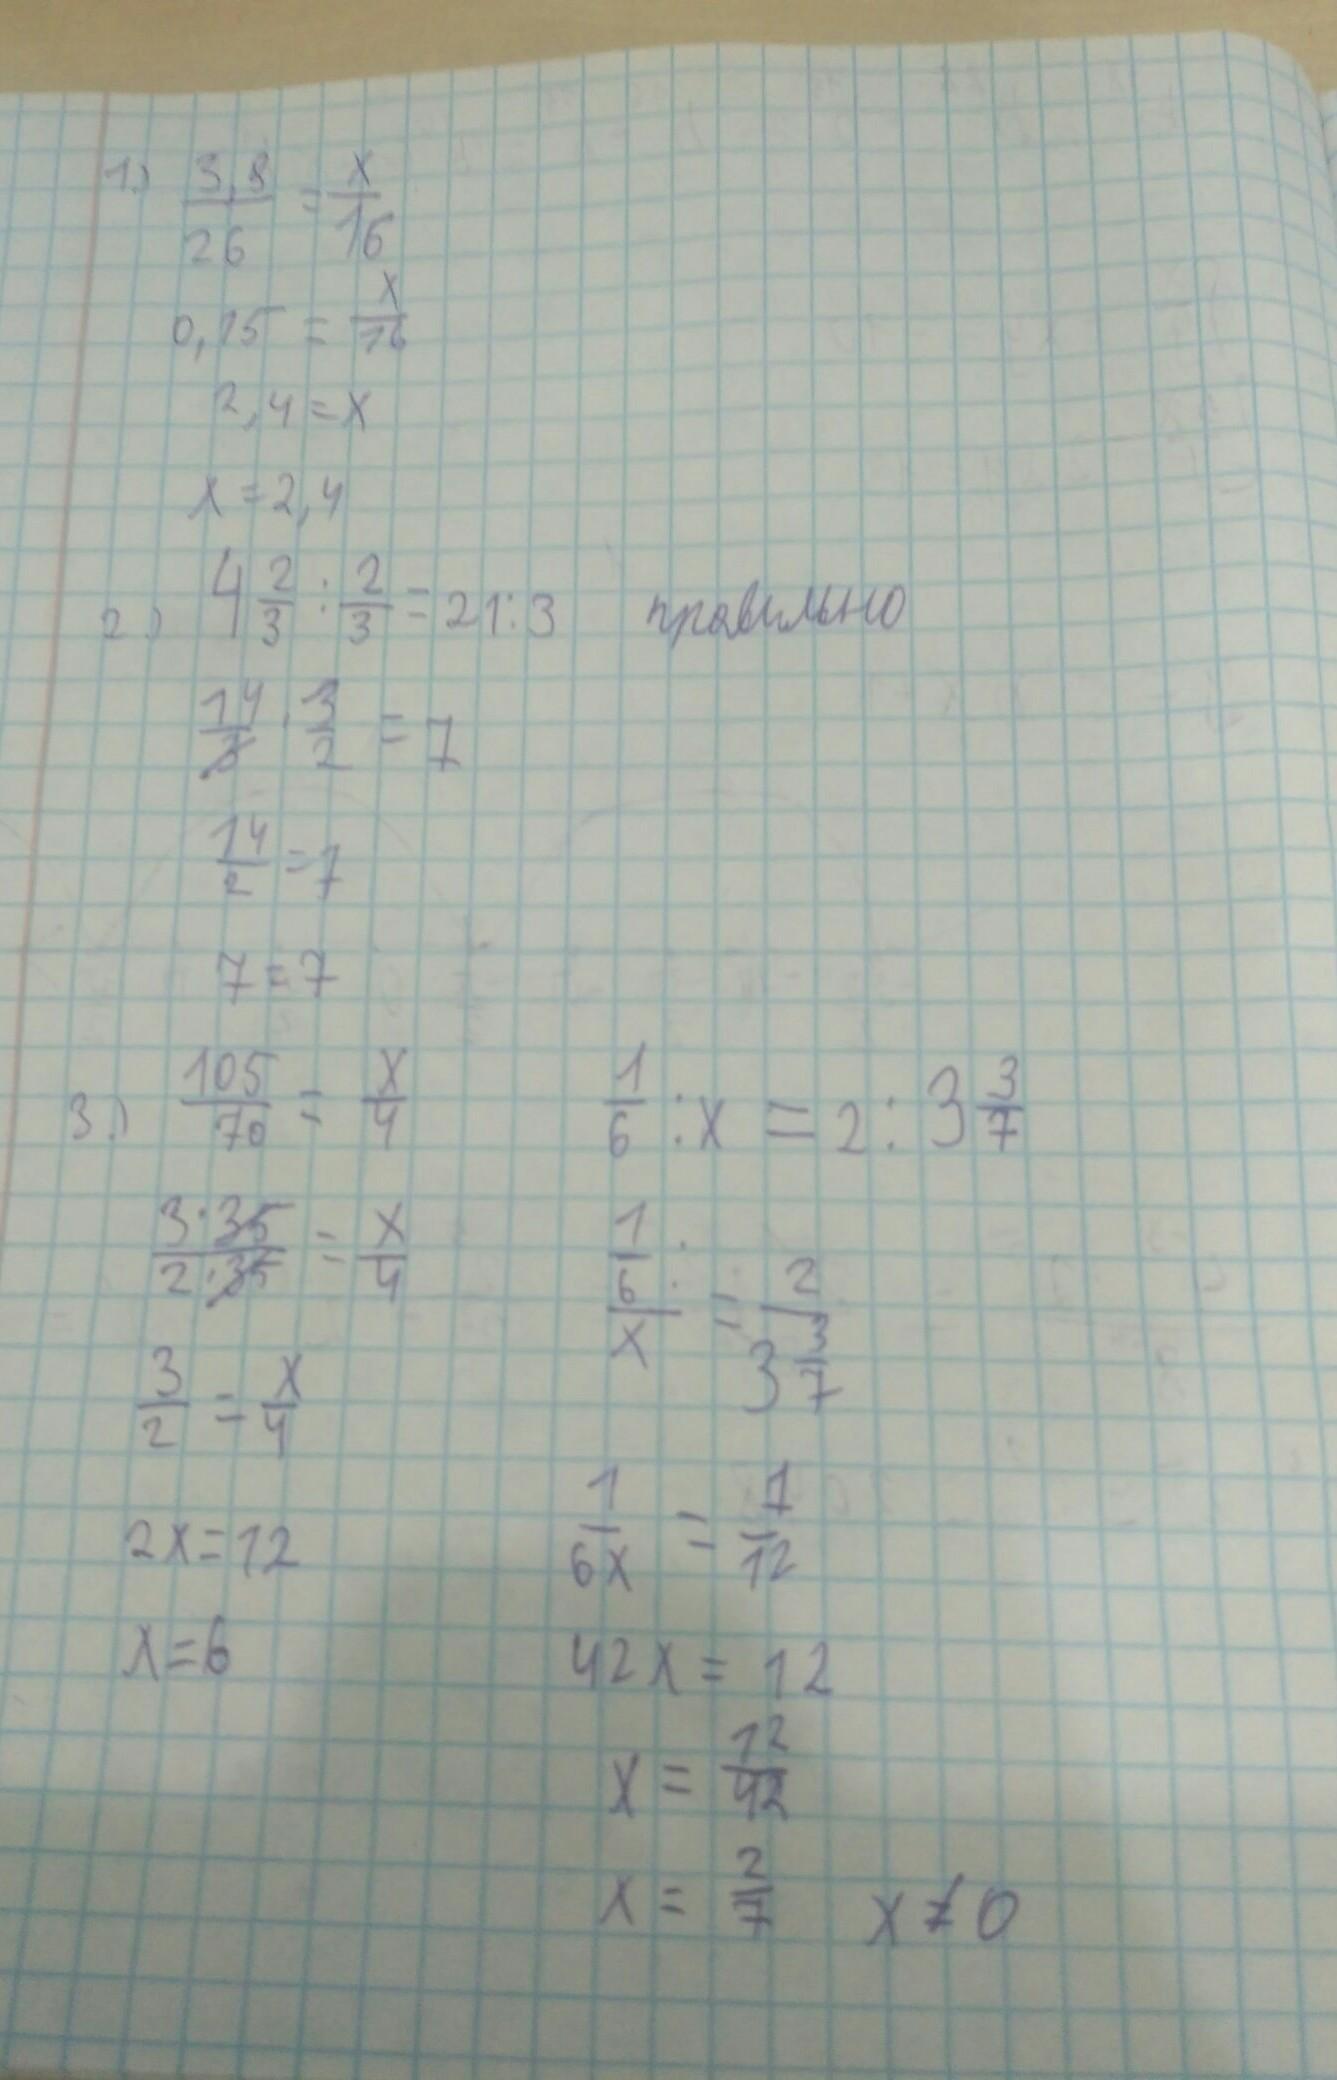 1.) 3,9/26 = x/16
0,15 = x/16
2,4 = x
x = 2,4
2.) 4 2/3 : 2/3 = 21 : 3 правильно
14/3 · 3/2 = 7
14/2 = 7
7 = 7
3.) 105/70 = x/4
3·35/2·35 = x/4
3/2 = x/4
2x = 12
x = 6
1/6 : x = 2 : 3 3/7
1/6 / x = 2 / 3 3/7
1/6x = 7/12
42x = 12
x = 12/42
x = 2/7 x ≠ 0